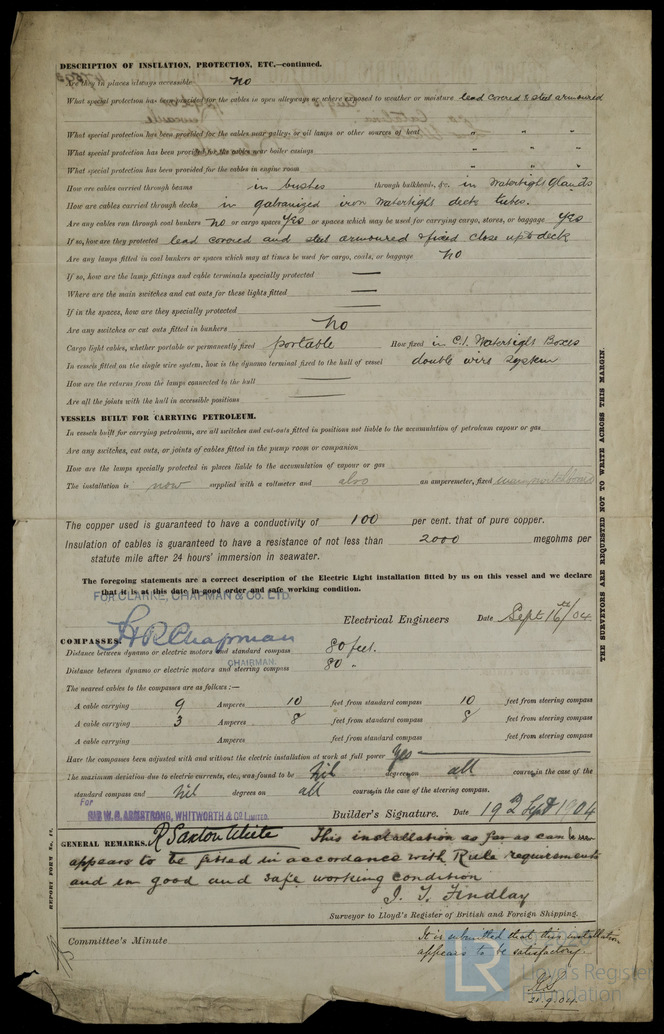 DESCRIPTION OF INSULATION, PROTECTION, ETC.—continued.
Are they in places always accessible no
What special protection has been provided for the cables in open alleyways or where exposed to weather or moisture lead covered & steel armoured
What special protection has been provided for the cables near galleys or oil lamps or other sources of heat " " "
What special protection has been provided for the cables near boiler casings " " "
What special protection has been provided for the cables in engine room " " "
How are cables carried through beams in bushes through bulkheads, &c. in Watertight Glands
How are cables carried through decks in galvanized iron Watertight deck tubes.
Are any cables run through coal bunkers no or cargo spaces yes or spaces which may be used for carrying cargo, stores, or baggage yes
If so, how are they protected lead covered and steel armoured & fixed close up to deck
Are any lamps fitted in coal bunkers or spaces which may at times be used for cargo, coals, or baggage no
If so, how are the lamp fittings and cable terminals specially protected —
Where are the main switches and cut outs for these lights fitted —
If in the spaces, how are they specially protected —
Are any switches or cut outs fitted in bunkers no
Cargo light cables, whether portable or permanently fixed portable How fixed in C.I. Watertight Boxes
In vessels fitted on the single wire system, how is the dynamo terminal fixed to the hull of vessel double wire system
How are the returns from the lamps connected to the hull —
Are all the joints with the hull in accessible positions —
VESSELS BUILT FOR CARRYING PETROLEUM.
In vessels built for carrying petroleum, are all switches and cut-outs fitted in positions not liable to the accumulation of petroleum vapour or gas
Are any switches, cut outs, or joints of cables fitted in the pump room or companion
How are the lamps specially protected in places liable to the accumulation of vapour or gas
The installation is now supplied with a voltmeter and also an amperemeter, fixed
The copper used is guaranteed to have a conductivity of 100 per cent. that of pure copper.
Insulation of cables is guaranteed to have a resistance of not less than 2000 megohms per
statute mile after 24 hours' immersion in seawater.
The foregoing statements are a correct description of the Electric Light installation fitted by us on this vessel and we declare
that it is at this date in good order and safe working condition.
FOR CLARKE, CHAPMAN & Co. LTD.
Electrical Engineers Date Sept 16th/04
Chapman
CHAIRMAN.
COMPASSES.
Distance between dynamo or electric motors and standard compass 80 feet.
Distance between dynamo or electric motors and steering compass 80 "
The nearest cables to the compasses are as follows:—
A cable carrying 9 Amperes 10 feet from standard compass 10 feet from steering compass
A cable carrying 3 Amperes 8 feet from standard compass 8 feet from steering compass
A cable carrying Amperes feet from standard compass feet from steering compass
Have the compasses been adjusted with and without the electric installation at work at full power Yes
The maximum deviation due to electric currents, etc., was found to be Nil degrees on all course in the case of the
standard compass and Nil degrees on all course in the case of the steering compass.
For
SIR W. G. ARMSTRONG, WHITWORTH & Co. LIMITED.
Builder's Signature. Date 19th Sept 1904
R Saxton White
GENERAL REMARKS. This installation as far as can be seen
appears to be fitted in accordance with Rule requirements
and in good and safe working condition
J. T. Findlay
Surveyor to Lloyd's Register of British and Foreign Shipping.
Committee's Minute
It is submitted that this installation
appears to be satisfactory.
21.9.04
THE SURVEYORS ARE REQUESTED NOT TO WRITE ACROSS THIS MARGIN.
LR
Lloyd's Register
Foundation